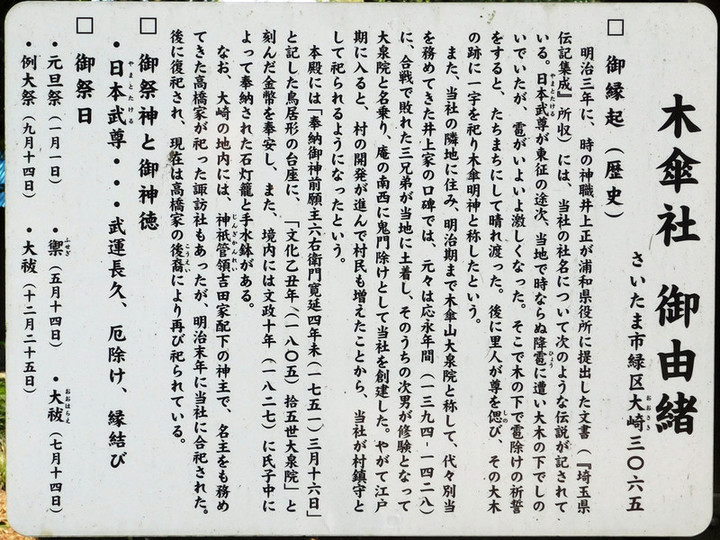 木傘社 御由緒
さいたま市緑区大崎三〇六五
□ 御縁起（歴史）
明治三年に、時の神職井上正が浦和県役所に提出した文書（『埼玉県
伝記集成』所収）には、当社の社名について次のような伝説が記されて
いる。日本武尊が東征の途次、当地で時ならぬ降雹に遭い大木の下でしの
いでいたが、雹がいよいよ激しくなった。そこで木の下で雹除けの祈誓
をすると、たちまちにして晴れ渡った。後に里人が尊を偲び、その大木
の跡に一宇を祀り木傘明神と称したという。
また、当社の隣地に住み、明治期まで木傘山大泉院と称して、代々別当
を務めてきた井上家の口碑では、元々は応永年間（一三九四-一四二八）
に、合戦で敗れた三兄弟が当地に土着し、そのうちの次男が修験となって
大泉院と名乗り、庵の南西に鬼門除けとして当社を創建した。やがて江戸
期に入ると、村の開発が進んで村民も増えたことから、当社が村鎮守と
して祀られるようになったという。
本殿には「奉納御神前願主六右衛門寛延四年未（一七五一）三月十六日」
と記した鳥居形の台座に、「文化乙丑年（一八〇五）拾五世大泉院」と
刻んだ金幣を奉安し、また、境内には文政十年（一八二七）に氏子中に
よって奉納された石灯籠と手水鉢がある。
なお、大崎の地内には、神祇管領吉田家配下の神主で、名主をも務め
てきた高橋家が祀った諏訪社もあったが、明治末年に当社に合祀された。
後に復祀され、現在は高橋家の後裔により再び祀られている。
□ 御祭神と御神徳
・日本武尊・・・武運長久、厄除け、縁結び
□ 御祭日
・元旦祭（一月一日） ・禦（五月十四日） ・大祓（七月十四日）
・例大祭（九月十四日） ・大祓（十二月二十五日）